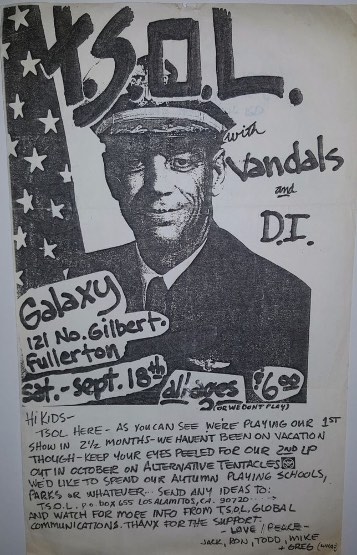 T.S.O.L.
with
Vandals
and
D.I.
Galaxy
121 No. Gilbert.
Fullerton
Sat. - Sept. 18th
all ages
(OR WE DON'T PLAY)
$6.00
HI KIDS-
TSOL HERE - AS YOU CAN SEE WE'RE PLAYING OUR 1ST
SHOW IN 2½ MONTHS - WE HAVEN'T BEEN ON VACATION
THOUGH - KEEP YOUR EYES PEELED FOR OUR 2ND LP
OUT IN OCTOBER ON ALTERNATIVE TENTACLES
WE'D LIKE TO SPEND OUR AUTUMN PLAYING SCHOOLS,
PARKS OR WHATEVER... SEND ANY IDEAS TO:
T.S.O.L. P.O BOX 655 LOS ALAMITOS, CA. 90720
AND WATCH FOR MORE INFO FROM T.S.O.L. GLOBAL
COMMUNICATIONS. THANX FOR THE SUPPORT
- LOVE / PEACE -
JACK, RON, TODD, MIKE
+ GREG